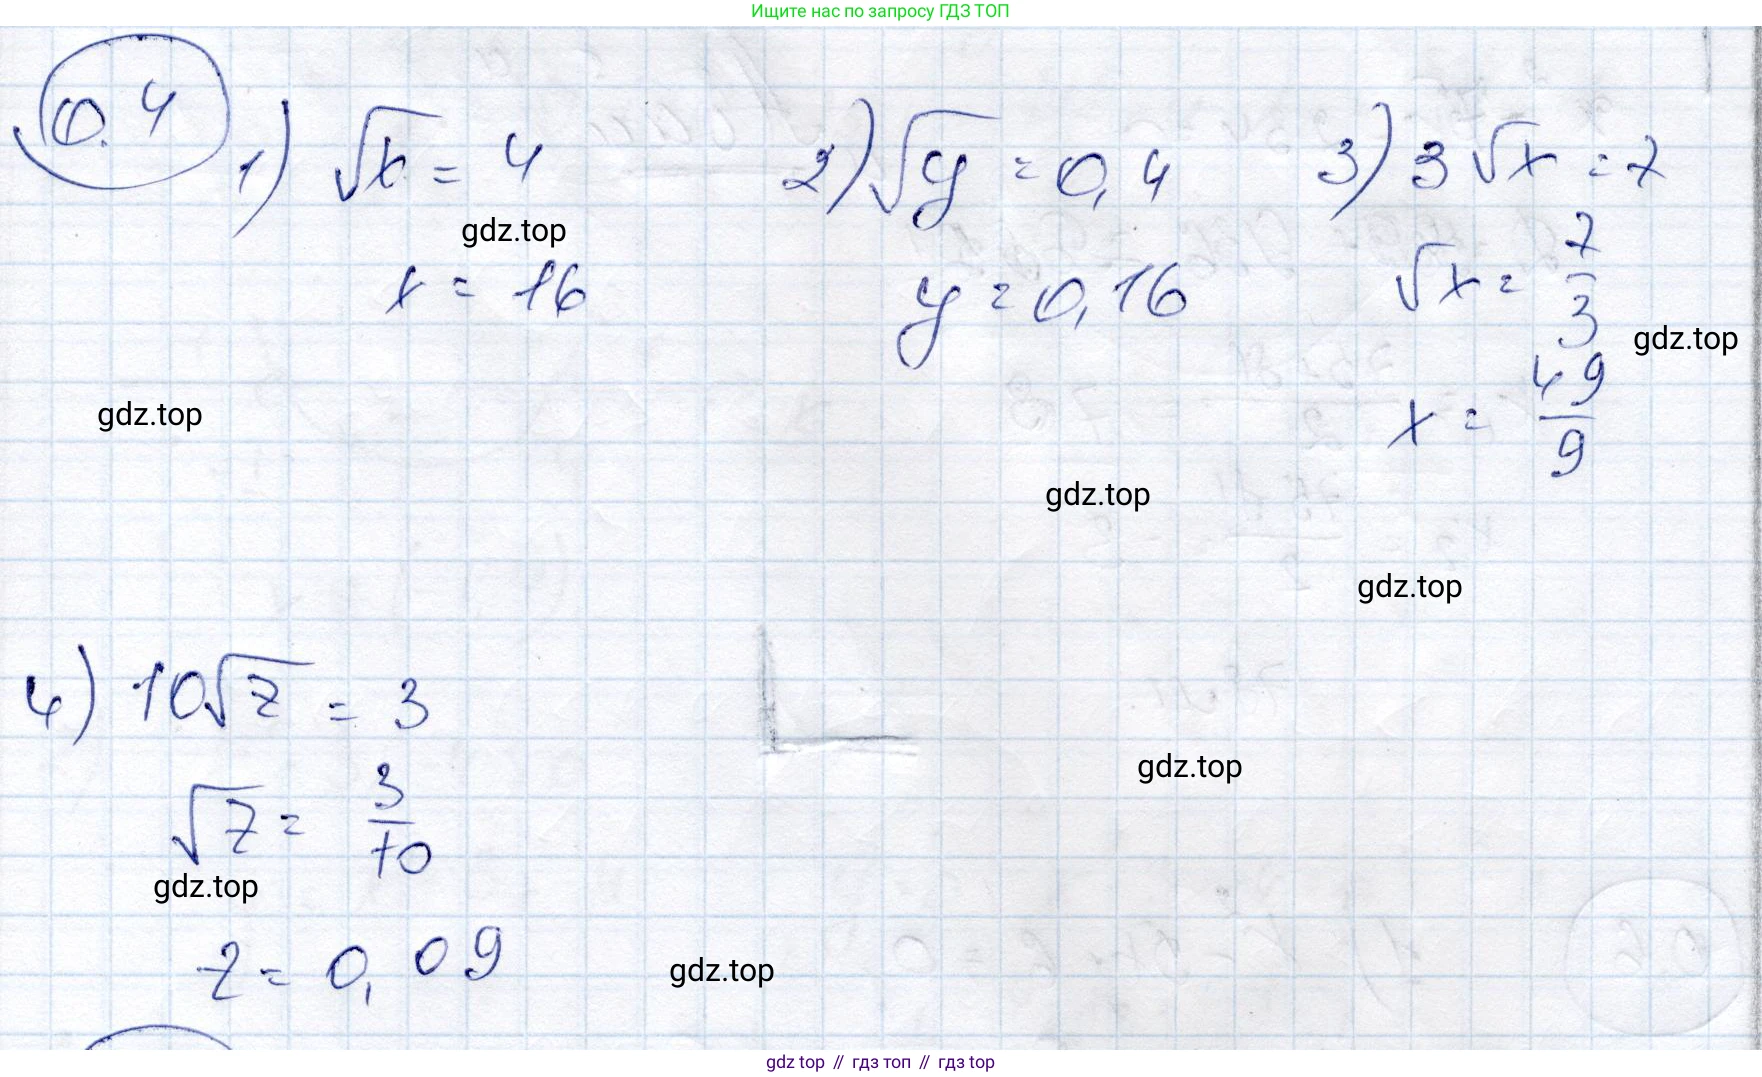 Ищите нас по запросу ГДЗ ТОП
0.4
1) √x = 4
x = 16
2) √y = 0,4
y = 0,16
3) 3√x = 7
√x = 7/3
x = 49/9
4) 10√z = 3
√z = 3/10
z = 0,09
gdz.top
gdz.top
gdz.top
gdz.top
gdz.top
gdz.top
gdz.top
gdz.top
gdz top // гдз топ // гдз top